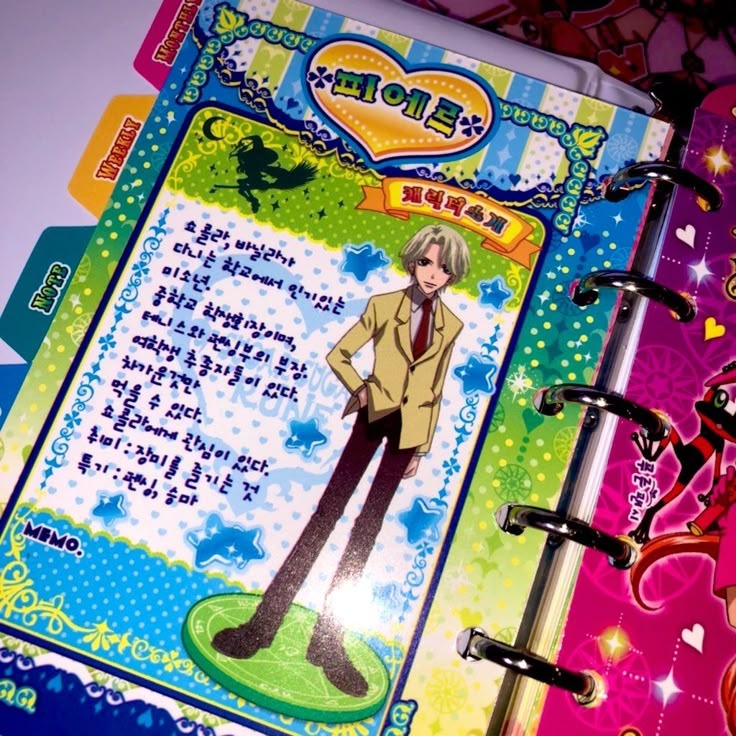 SYNCHRO?
WEEKLY
NOTE
피에르
캐릭터소개
쇼콜라, 바닐라가
다니는 학교에서 인기있는
미소년.
중학교 학생회장이며,
테니스와 펜싱부의 부장.
여학생 추종자들이 있다.
차가운것만
먹을 수 있다.
쇼콜라에게 관심이 있다.
취미 : 장미를 즐기는 것
특기 : 펜싱, 승마
MEMO.